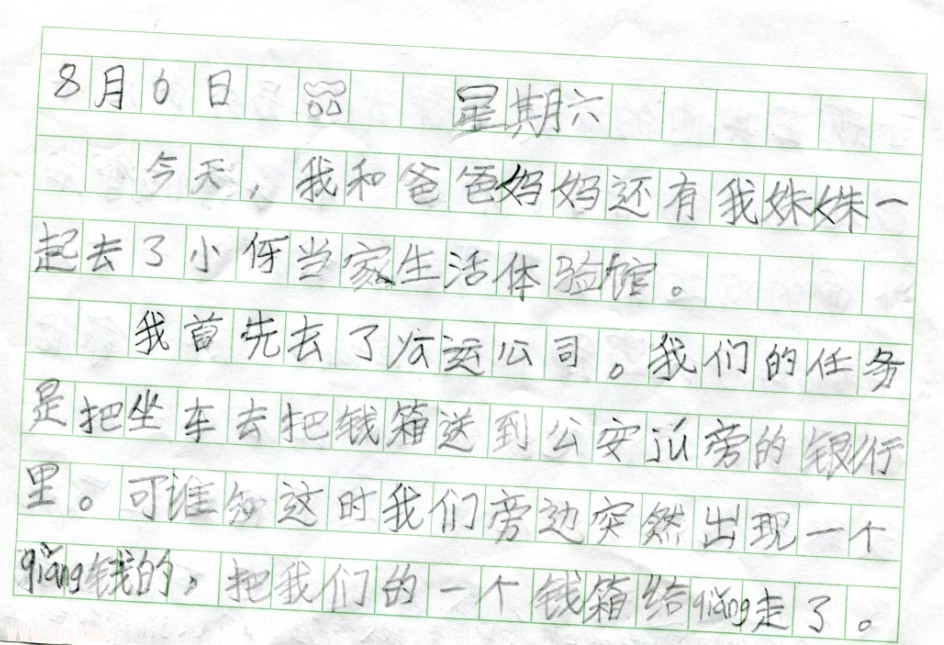 8月6日 星期六
今天，我和爸爸妈妈还有我姝姝一
起去了小伢当家生活体验馆。
我首先去了公运公司。我们的任务
是把坐车去把钱箱送到公安jú旁的银行
里。可谁知这时我们旁边突然出现一个
qiǎng钱的，把我们的一个钱箱给qiǎng走了。